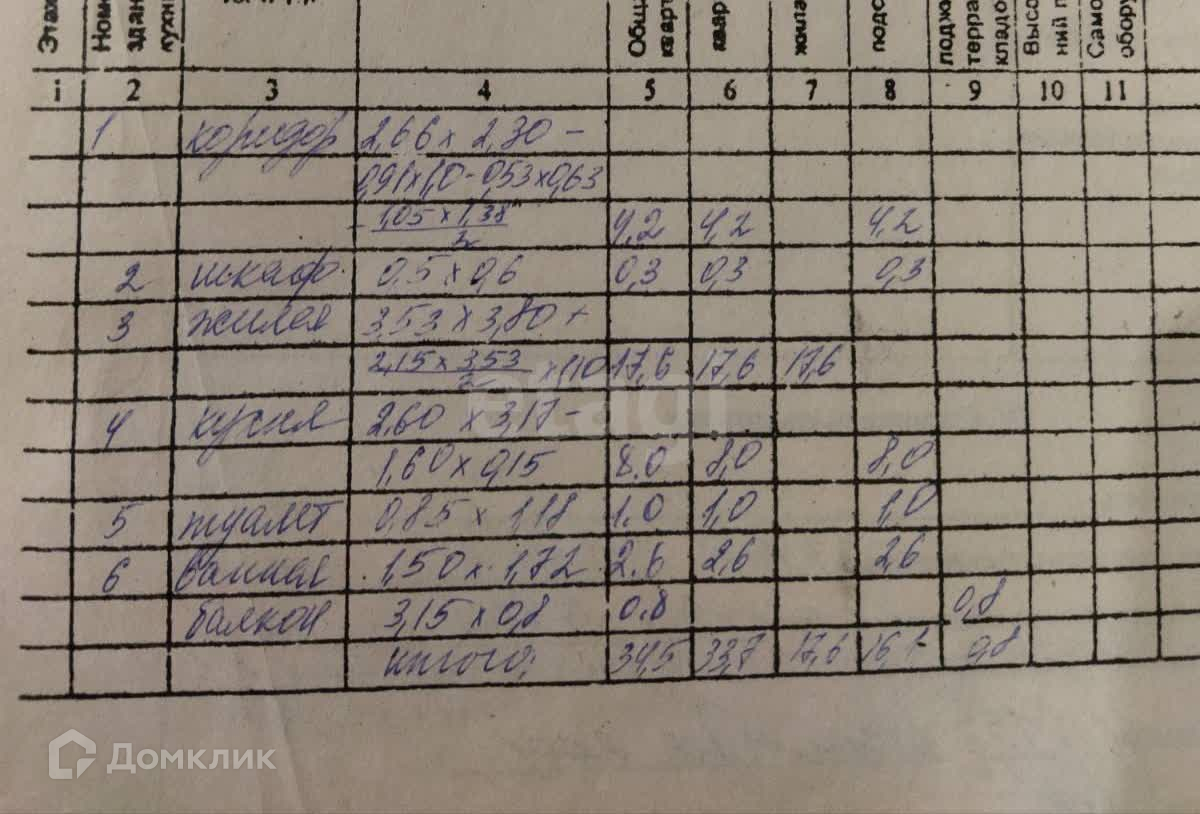 Этаж Номе здани кухни Обща кварти кварт жила подсо лоджи террас кладов Высо ний п Само обору
1 2 3 4 5 6 7 8 9 10 11
1 коридор 2,66 х 2,30 –
0,91х1,0 - 0,53х0,63
- 1,05 х 1,38 / 2 4,2 4,2 4,2
2 шкаф 0,5 х 0,6 0,3 0,3 0,3
3 жилая 3,53 х 3,80 +
2,15 х 3,53 / 2 х 1,10 17,6 17,6 17,6
4 кухня 2,60 х 3,17 -
1,60 х 0,15 8.0 8,0 8,0
5 туалет 0,85 х 1,18 1.0 1,0 1,0
6 ванная 1,50 х 1,72 2.6 2,6 2,6
балкон 3,15 х 0,8 0.8 0,8
итого: 34,5 33,7 17,6 16,1 0,8
etagi
Домклик